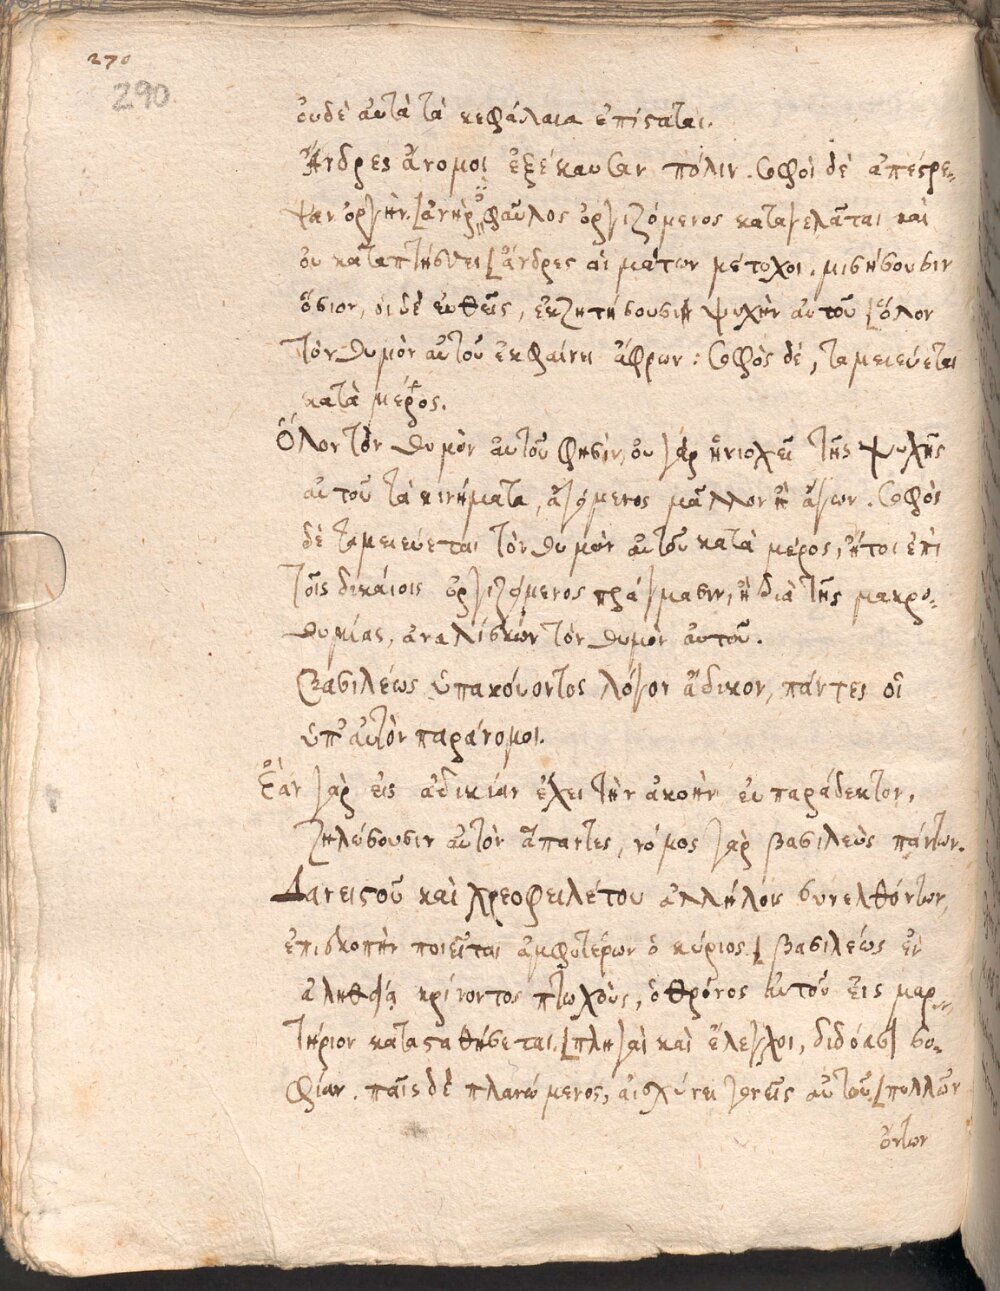 270
290
οὐδὲ αὐτὰ τὰ κεφάλαια ἐπίσταται.
Ἄνδρες ἄνομοι ἐξέκαυσαν πόλιν. σοφοὶ δὲ ἀπέστρε-
ψαν ὀργήν. [ἀνὴρ φαῦλος ὀργιζόμενος καταγελᾶται καὶ
οὐ καταπτήσσει [ἄνδρες αἱμάτων μέτοχοι, μισήσουσιν
ὅσιον, οἱ δὲ εὐθεῖς, ἐκζητήσουσιν ψυχὴν αὐτοῦ [ὅλον
τὸν θυμὸν αὐτοῦ ἐκφαίνει ἄφρων: σοφὸς δὲ, ταμιεύεται
κατὰ μέρος.
Ὅλον τὸν θυμὸν αὐτοῦ φησίν, οὐ γὰρ ἡνιοχεῖ τῆς ψυχῆς
αὐτοῦ τὰ κινήματα, ἀγόμενος μᾶλλον ἢ ἄγων. σοφὸς
δὲ ταμιεύεται τὸν θυμὸν αὐτοῦ κατὰ μέρος, ἤτοι ἐπὶ
τοῖς δικαίοις ὀργιζόμενος πράγμασιν, ἢ διὰ τῆς μακρο-
θυμίας, ἀναλίσκων τὸν θυμὸν αὐτοῦ.
Βασιλέως ὑπακούοντος λόγον ἄδικον, πάντες οἱ
ὑπ' αὐτὸν παράνομοι.
Ἐὰν γὰρ εἰς ἀδικίαν ἔχει τὴν ἀκοὴν εὐπαράδεκτον,
ζηλώσουσιν αὐτὸν ἅπαντες, νόμος γὰρ βασιλεὺς πάντων.
Δανειστοῦ καὶ χρεοφειλέτου ἀλλήλοις συνελθόντων,
ἐπισκοπὴν ποιεῖται ἀμφοτέρων ὁ κύριος. [βασιλέως ἐν
ἀληθείᾳ κρίνοντος πτωχοὺς, ὁ θρόνος αὐτοῦ εἰς μαρ-
τύριον κατασταθήσεται. [πληγαὶ καὶ ἔλεγχοι, διδόασι σο-
φίαν. παῖς δὲ πλανώμενος, αἰσχύνει γονεῖς αὐτοῦ. [πολλῶν
ὄντων